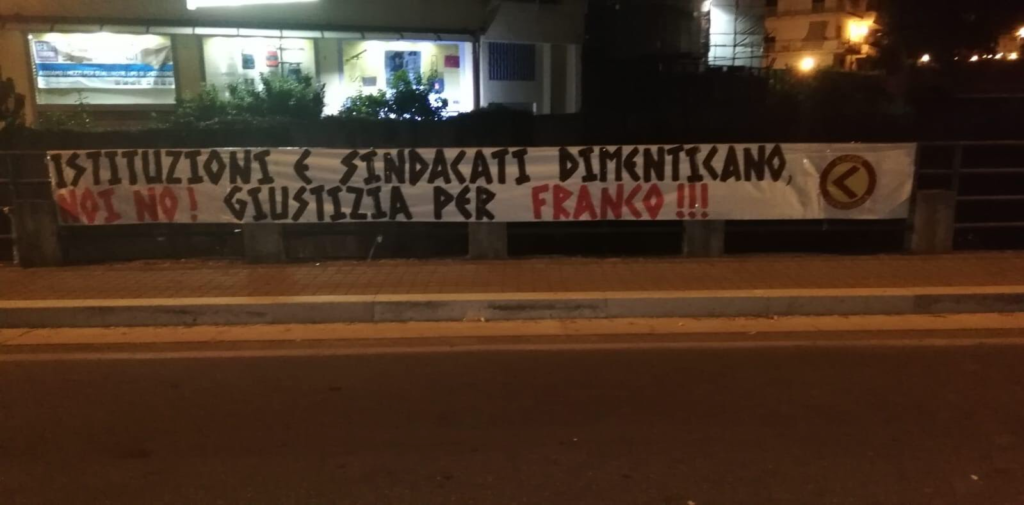 ISTITUZIONI E SINDACATI DIMENTICANO,
NOI NO! GIUSTIZIA PER FRANCO!!!